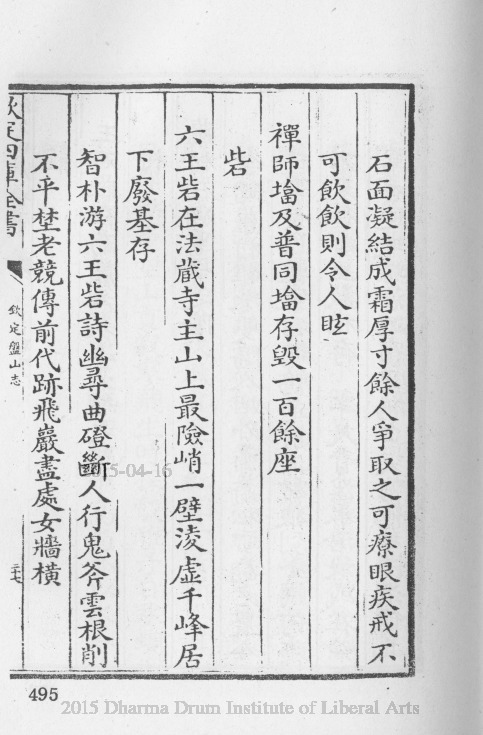 石面凝結成霜厚寸餘人爭取之可療眼疾戒不
可飲飲則令人眩
禪師墖及普同墖存毀一百餘座
砦
六王砦在法藏寺主山上最險峭一壁淩虛千峰居
下廢基存
智朴游六王砦詩幽尋曲磴斷人行鬼斧雲根削
不平埜老競傳前代跡飛巖盡處女牆橫
欽定四庫全書
欽定盤山志
二十七
495
5-04-16
2015 Dharma Drum Institute of Liberal Arts